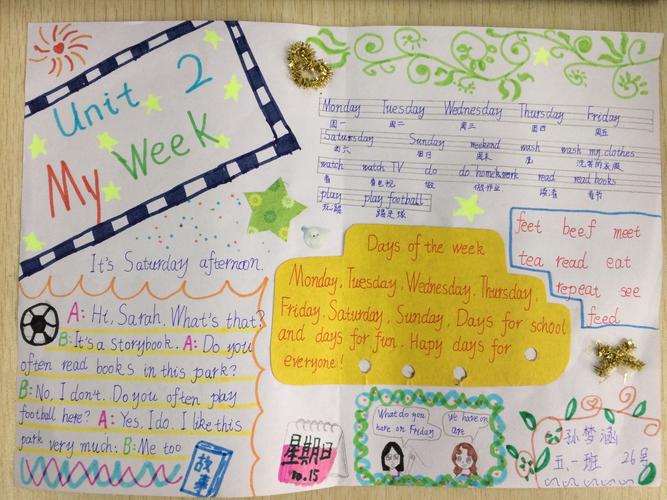 Unit 2
My Week
Monday Tuesday Wednesday Thursday Friday
周一 周二 周三 周四 周五
Saturday Sunday weekend wash wash my clothes
周六 周日 周末 洗 洗我的衣服
watch watch TV do do homework read read books
看 看电视 做 做作业 看书
play play football
踢足球
feet beef meet
tea read eat
repeat see
feed
Days of the week
Monday, Tuesday, Wednesday, Thursday,
Friday, Saturday, Sunday, Days for school
and days for fun. Hapy days for
everyone!
It's Saturday afternoon.
A: Hi, Sarah. What's that?
B: It's a storybook. A: Do you
often read books in this park?
B: No, I don't. Do you often play
football here? A: Yes. I do. I like this
park very much. B: Me too
故事
星期日
10.15
What do you
have on Friday
We have on
art
孙梦涵
五.一班 26号